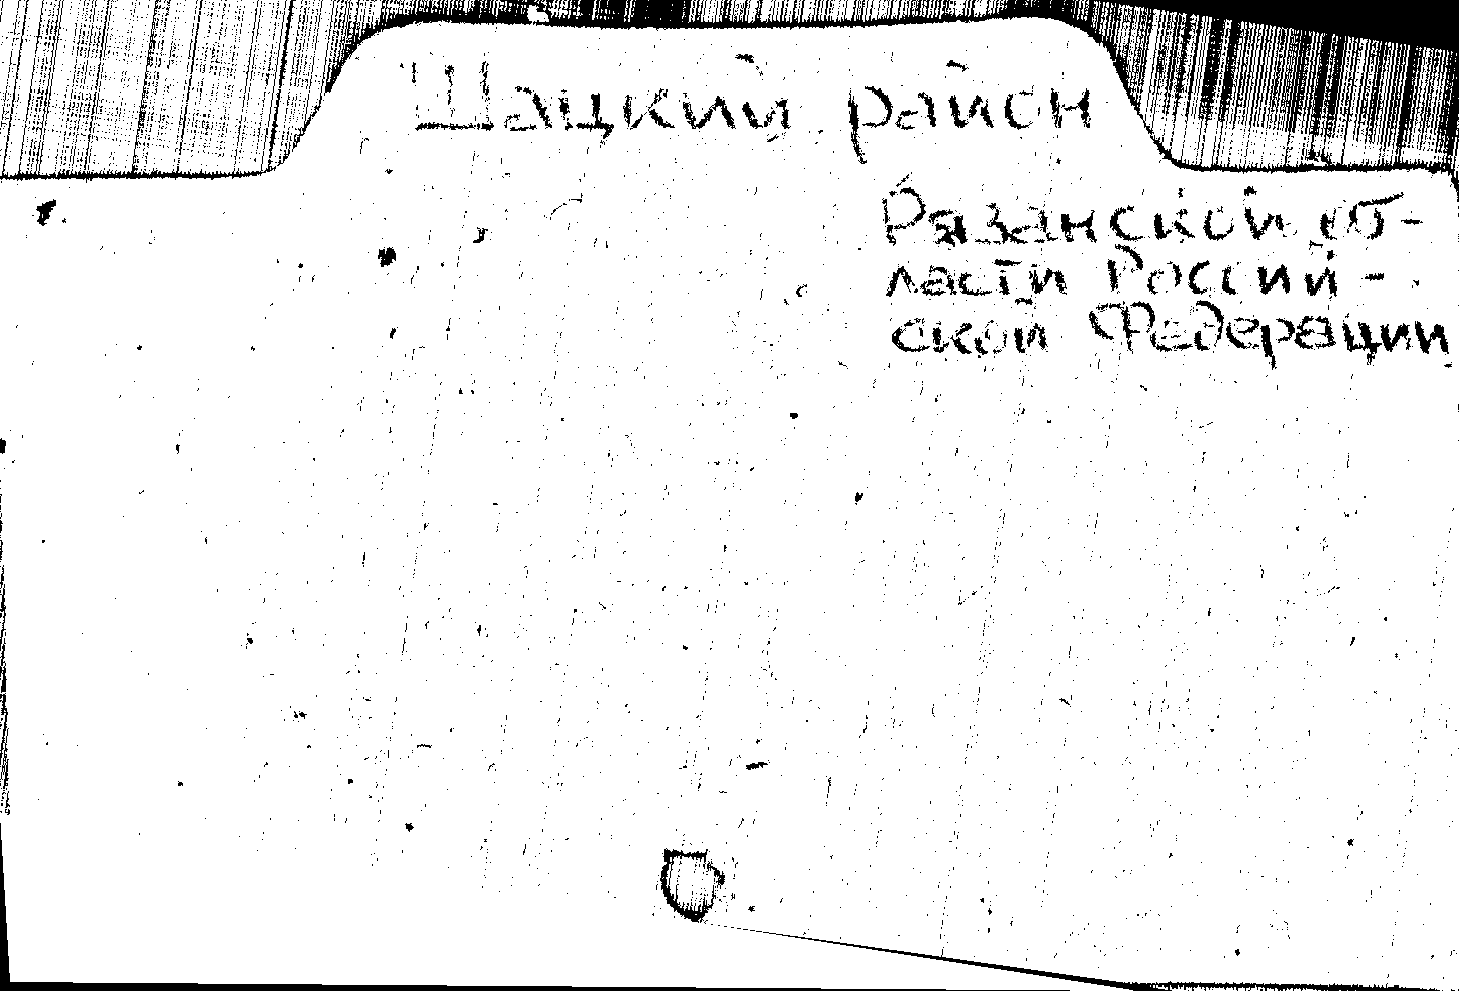 Шацкий район
Рязанской об-
ласти Россий-
ской Федерации